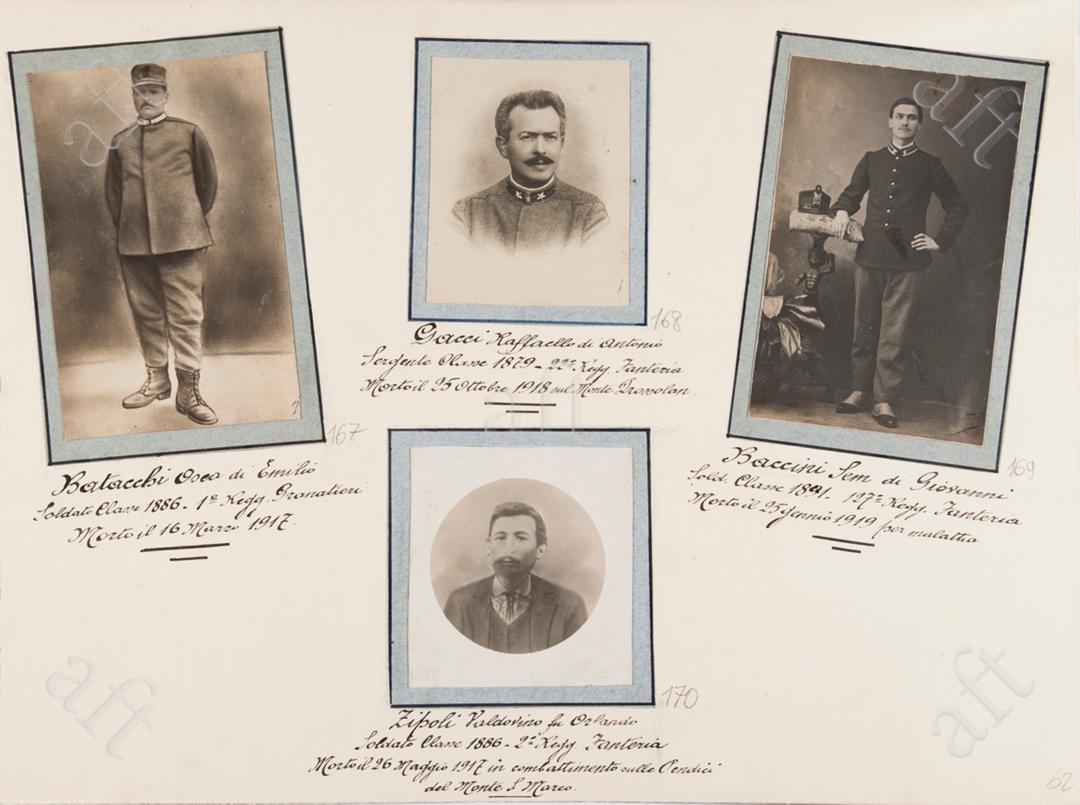 167
Batacchi Osea di Emilio
Soldato Classe 1886 - 1° Regg. Granatieri
Morto il 16 Marzo 1917.
168
Gacci Raffaello di Antonio
Sergente Classe 1879 - 22° Regg. Fanteria
Morto il 25 Ottobre 1918 sul Monte
169
Baccini Sem di Giovanni
Sold. Classe 127° Regg. Fanteria
Morto il 25 Gennaio 1919 per malattia
170
Zipoli Valdovino fu Orlando
Soldato Classe 1886 - 2° Regg. Fanteria
Morto il 26 Maggio 1917 in combattimento sulle Pendici
del Monte S. Marco.
62
aft
aft
aft
aft
aft